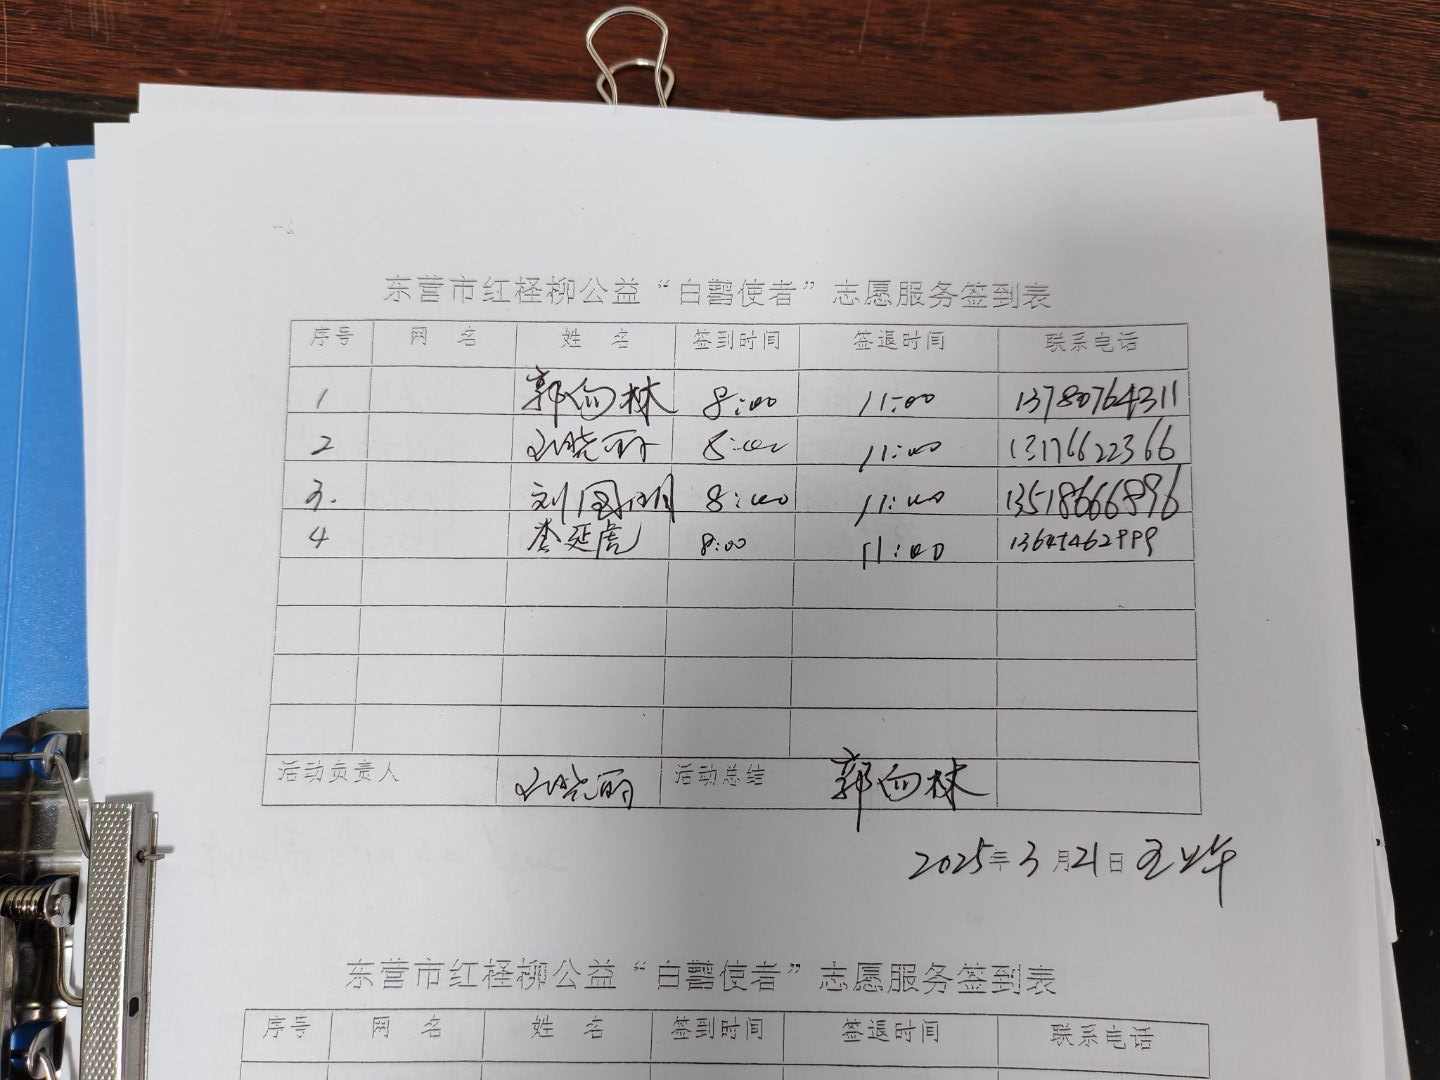 东营市红柽柳公益“白鹳使者”志愿服务签到表
序号 网 名 姓 名 签到时间 签退时间 联系电话
1 郭向林 8:00 11:00 13780764311
2 刘晓丽 8:00 11:00 13176622366
3. 刘国明 8:00 11:00 13518666896
4 李延虎 8:00 11:00
活动负责人 刘晓丽 活动总结 郭向林
2025年3月21日 五上午
东营市红柽柳公益“白鹳使者”志愿服务签到表
序号 网 名 姓 名 签到时间 签退时间 联系电话